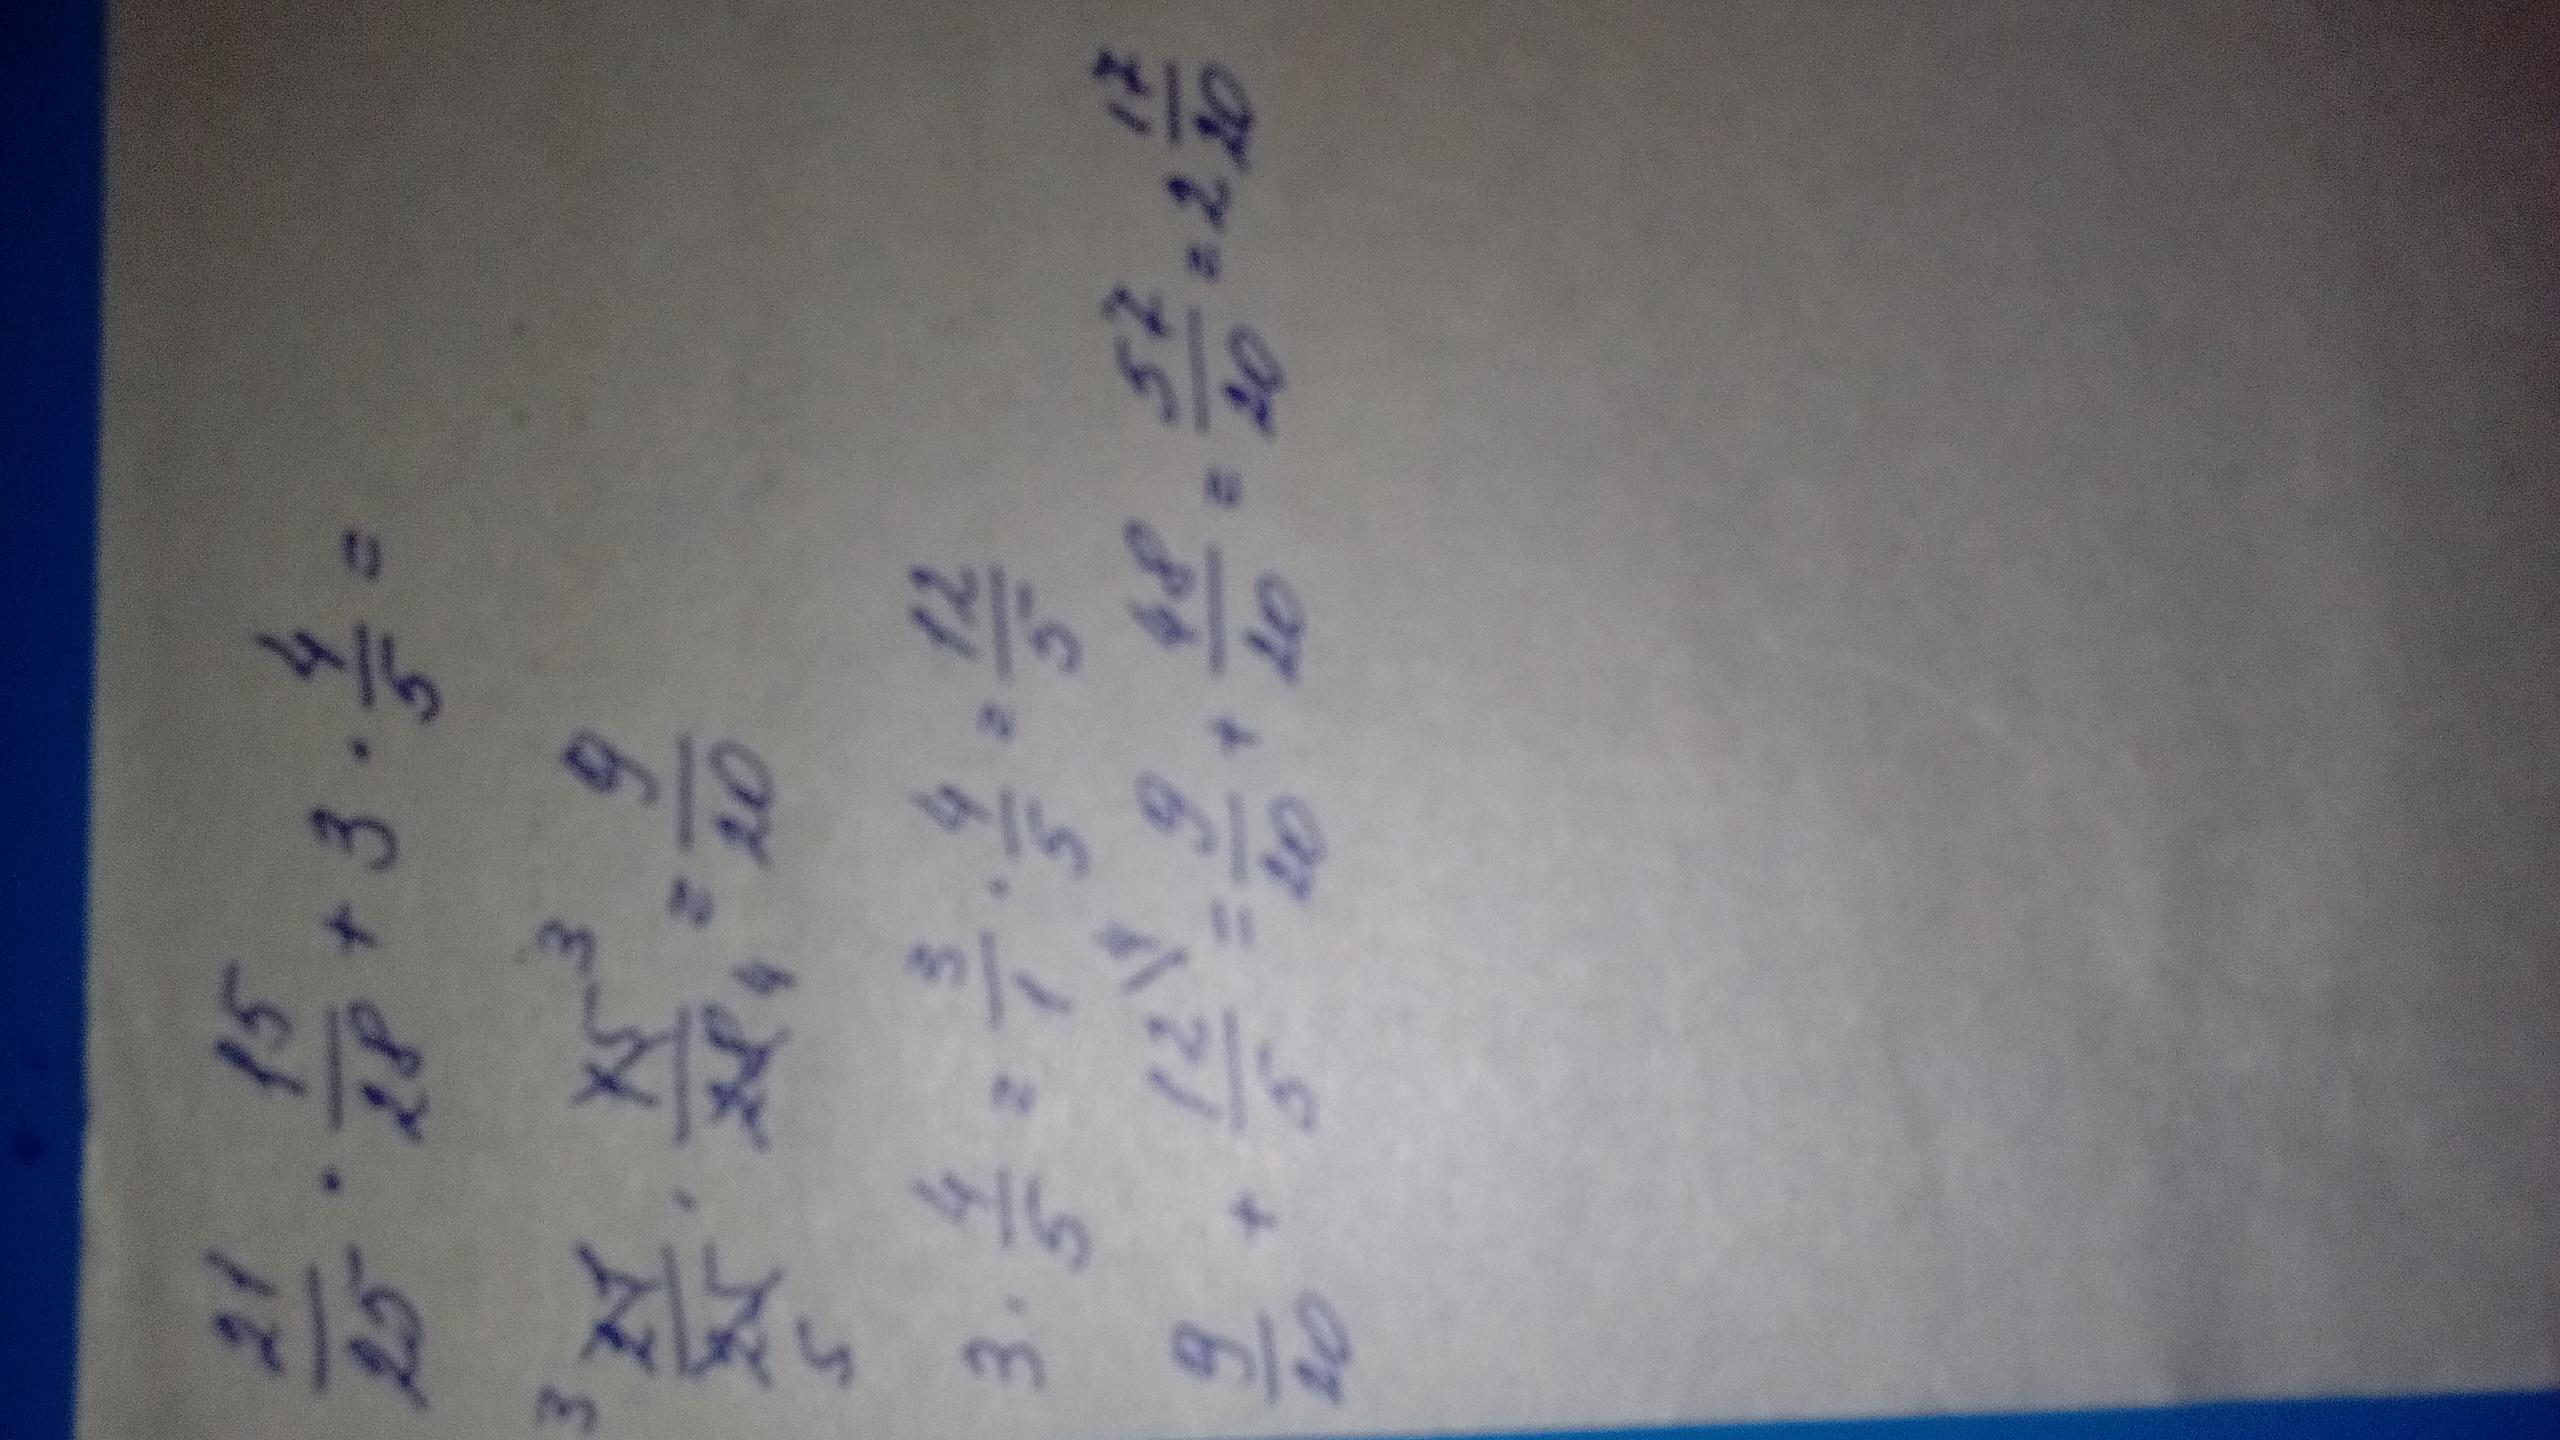 21/25 · 15/28 + 3 · 4/5 =
3 21/25 5 · 15 3/28 4 = 9/20
3 · 4/5 = 3/1 · 4/5 = 12/5
9/20 + 12/5 \4 = 9/20 + 48/20 = 57/20 = 2 17/20